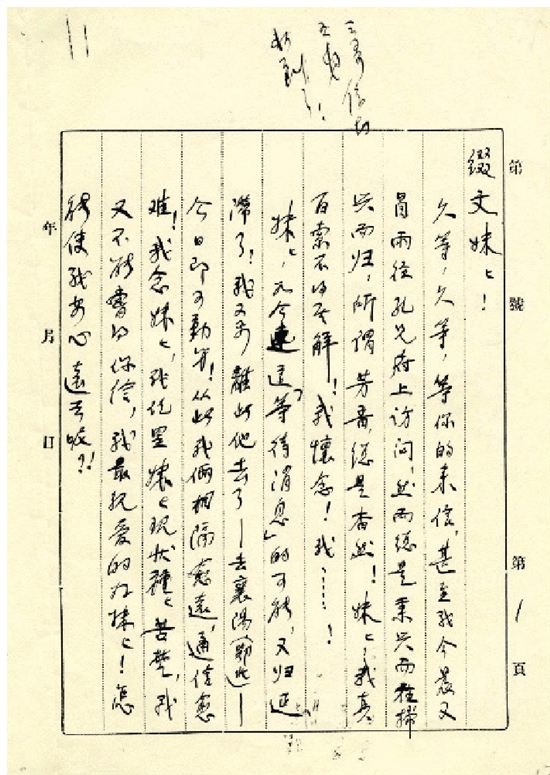 三哥信切
五妹
收到了!
第 號
第 1 頁
綴文妹妹!
久等,久等,等你的来信,甚至我今晨又
冒雨往孔兄府上访问,然而總是乘兴而往掃
兴而归,所谓芳音,總是杳然!妹妹!我真
百索不得其解!我懷念!我……!
妹妹,兀今連這「等待消息」的可能,又归延
滞了!我又要離此他去了—去襄陽(鄂北)—
今日即可動身!从此我倆相隔愈遠,通信愈
难!我念妹妹,我徒罣妹妹现状種種苦楚,我
又不能看到你信,我最親爱的九妹妹!怎
能使我安心遠去呢?!
年 月 日